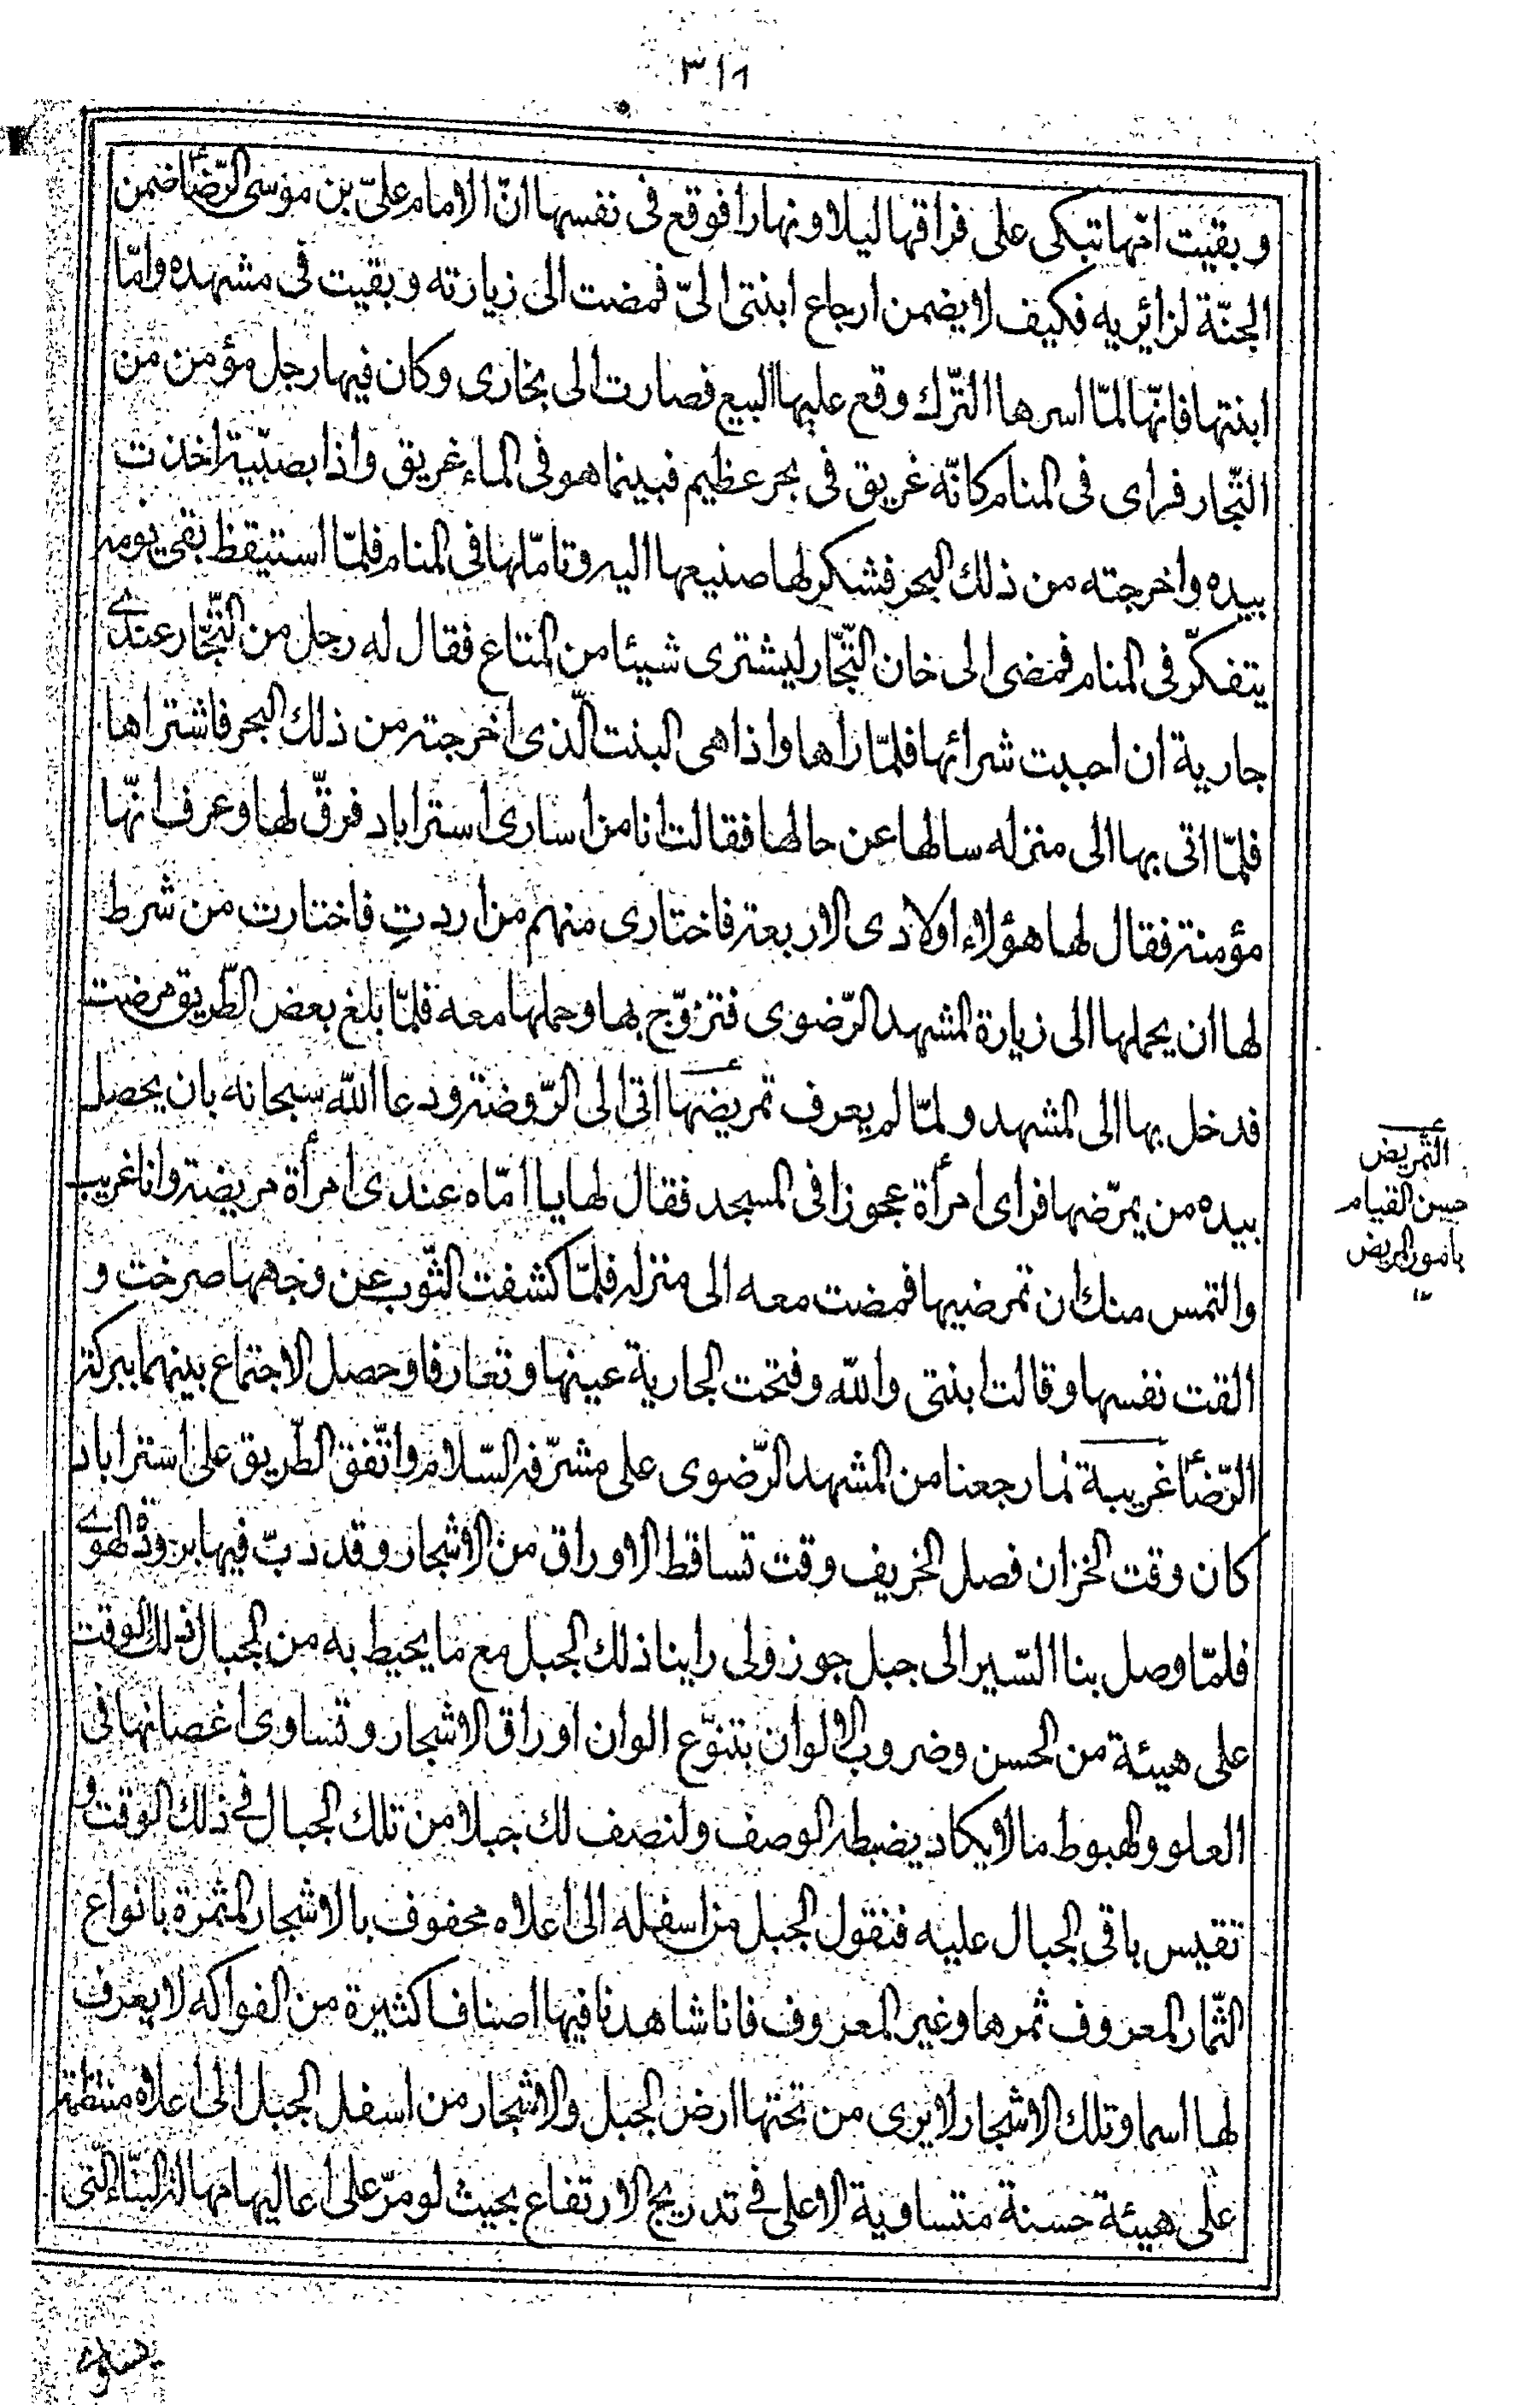 ٣١٦
و بقيت امّها تبكى على فراقها ليلا و نهارا فوقع فى نفسها انّ الامام علىّ بن موسى الرّضاؑ ضمن
الجنّة لزائريه فكيف لا يضمن ارجاع ابنتى الىّ فمضت الى زيارته و بقيت فى مشهده و امّا
ابنتها فانّها لمّا اسرها التّرك وقع عليها البيع فصارت الى بخارى و كان فيها رجل مؤمن من
التّجار فراى فى المنام كانّه غريق فى بحر عظيم فبينما هو فى الماء غريق و اذا بصبيّة اخذت
بيده و اخرجته من ذلك البحر فشكر لها صنيعها اليه و تامّلها فى المنام فلمّا استيقظ بقى يومه
يتفكّر فى المنام فمضى الى خان التّجّار ليشترى شيئا من المتاع فقال له رجل من التّجّار عندى
جارية ان احببت شرائها فلمّا راها و اذا هى البنت الّذى اخرجته من ذلك البحر فاشتراها
فلمّا اتى بها الى منزله سالها عن حالها فقالت انا من اسارى استراباد فرقّ لها و عرف انّها
مؤمنة فقال لها هؤلاء اولادى الاربعة فاختارى منهم من اردتِ فاختارت من شرط
لها ان يحملها الى زيارة المشهد الرّضوى فتزوّج بها و حملها معه فلمّا بلغ بعض الطّريق مرضت
فدخل بها الى المشهد و لمّا لم يعرف تمريضها اتى الى الرّوضة و دعا اللّه سبحانه بان يحصل
بيده من يمرّضها فراى امرأة عجوزا فى المسجد فقال لها يا امّاه عندى امرأة مريضة و انا غريب
و التمس منك ان تمرضيها فمضت معه الى منزله فلمّا كشفت الثّوب عن وجهها صرخت و
القت نفسها و قالت ابنتى و اللّه و فتحت الجارية عينها و تعارفا و حصل الاجتماع بينهما ببركة
الرّضاؑ غريبة لما رجعنا من المشهد الرّضوى على مشرّفه السّلام و اتّفق الطّريق على استراباد
كان وقت الخزان فصل الخريف وقت تساقط الاوراق من الاشجار و قد دبّ فيها برودة الهوى
فلمّا وصل بنا السّير الى جبل جوز ولى راينا ذلك الجبل مع ما يحيط به من الجبال فى ذلك الوقت
على هيئة من الحسن و ضروب الالوان بتنوّع الوان اوراق الاشجار و تساوى اغصانها فى
العلو و الهبوط ما لا يكاد يضبطه الوصف و لنصف لك جبلا من تلك الجبال فى ذلك الوقت و
تقيس باقى الجبال عليه فنقول الجبل من اسفله الى اعلاه محفوف بالاشجار المثمرة بانواع
الثّمار المعروف ثمرها و غير المعروف فانا شاهدنا فيها اصنافا كثيرة من الفواكه لا يعرف
لها اسما و تلك الاشجار لا يرى من تحتها ارض الجبل و الاشجار من اسفل الجبل الى اعلاه منتظمة
على هيئة حسنة متساوية الاعلى فى تدريج الارتفاع بحيث لو مرّ على اعاليها البنّاء الّتى
التّمريض
حسن القيام
بامور المريض